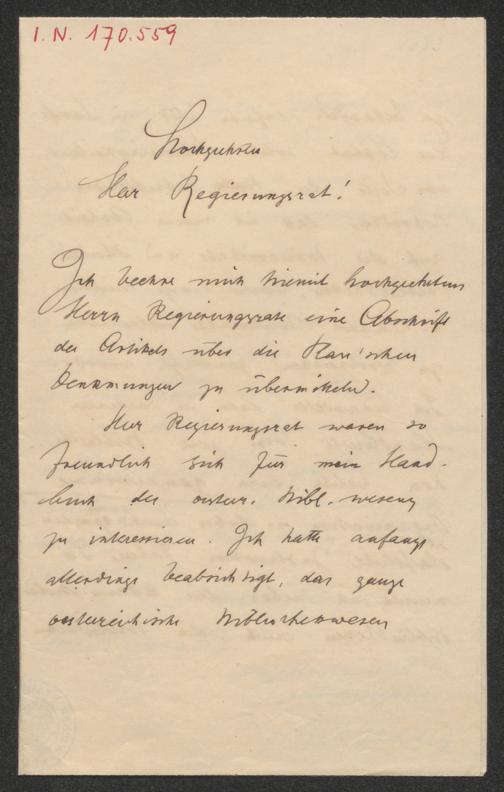 I. N. 170.559
Hochgeehrter
Herr Regierungsrat!
Ich beehre mich hiemit hochgeehrtem
Herrn Regierungsrate eine Abschrift
des Artikels über die
zu übermitteln.
Herr Regierungsrat waren so
freundlich sich für mein Hand-
buch des österr. Bibl.-wesens
zu interessieren. Ich hatte anfangs
allerdings beabsichtigt, das ganze
österreichische Bibliothekswesen